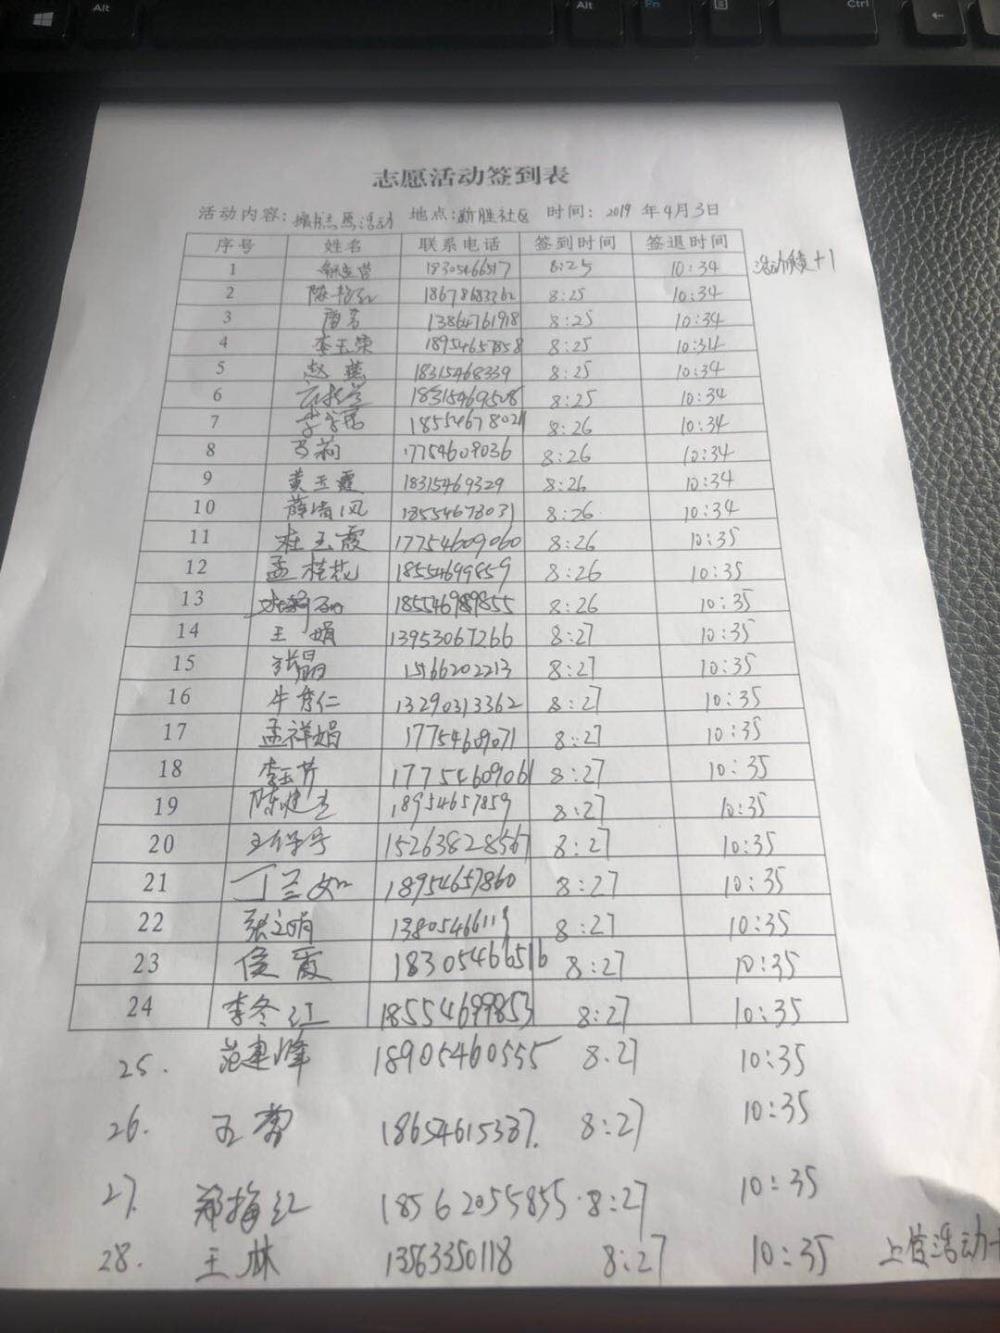 志愿活动签到表
活动内容: 志愿活动 地点:新胜社区 时间: 2019 年4月3日
序号 姓名 联系电话 签到时间 签退时间
1 18305466517 8:25 10:34 活动 +1
2 陈艳红 18678683362 8:25 10:34
3 唐芳 13864761918 8:25 10:34
4 李玉荣 18954657858 8:25 10:34
5 赵燕 18315468339 8:25 10:34
6 18315469508 8:25 10:34
7 8:26 10:34
8 马莉 17754609036 8:26 10:34
9 黄玉霞 18315469329 8:26 10:34
10 薛清风 18554673031 8:26 10:34
11 杜玉霞 17754609060 8:26 10:35
12 孟桂花 18554699859 8:26 10:35
13 185546989855 8:26 10:35
14 王娟 13953067266 8:27 10:35
15 张晶 15166202213 8:27 10:35
16 牛身仁 13290313362 8:27 10:35
17 孟祥娟 17754609071 8:27 10:35
18 李玉芹 17754609061 8:27 10:35
19 陈建 18954657859 8:27 10:35
20 15263828567 8:27 10:35
21 丁兰如 18954657860 8:27 10:35
22 张文娟 13805466119 8:27 10:35
23 侯霞 18305466516 8:27 10:35
24 李冬江 18554699853 8:27 10:35
25. 范建峰 18905460555 8.27 10:35
26. 18654615337. 8:27 10:35
27. 郑梅红 18562055855 8:27 10:35
28. 王林 13563350118 8:27 10:35 活动